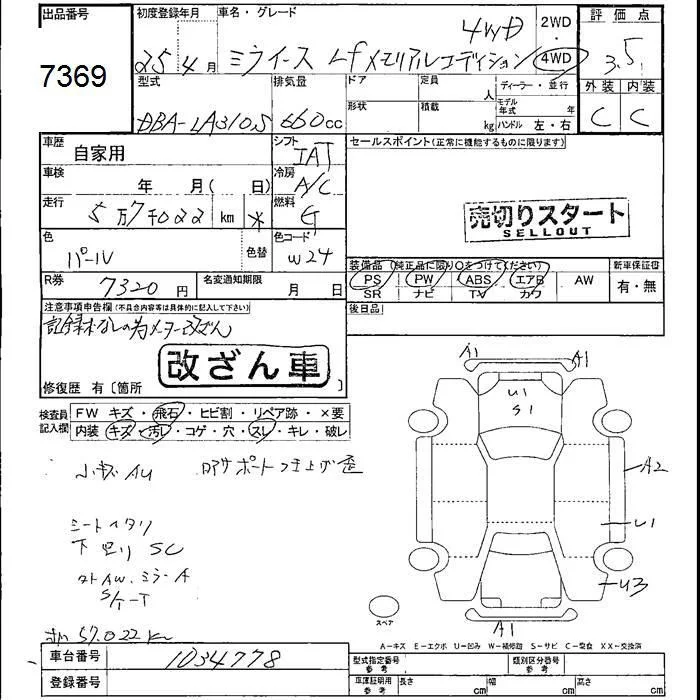 出品番号
7369
初度登録年月
25年 4月
車名・グレード
4WD
ミライース Lf メモリアルエディション
2WD
・
4WD
評価点
3.5
外装 内装
C C
型式
DBA-LA310S
排気量
660cc
ドア
形状
定員
人
積載
kg
ディーラー・並行
モデル年式 年
ハンドル 左・右
車歴
自家用
シフト
IAT
車検
年 月( 日)
冷房
A/C
走行
5万7千022 km *
燃料
G
色
パール
色替
色コード
W24
セールスポイント(正常に機能するものに限ります)
売切りスタート
SELLOUT
R券
7320 円
名変通知期限
月 日
装備品(純正品に限り○をつけてください)
PS PW ABS エアB AW
SR ナビ TV カワ
新車保証書
有・無
後日品
注意事項申告欄(不具合内容等は具体的に記入して下さい)
記録なしの為メーター改ざん
改ざん車
修復歴 有〔箇所 〕
検査員記入欄
FW キズ・飛石・ヒビ割・リペア跡・×要
内装 キズ・汚レ・コゲ・穴・スレ・キレ・破レ
小キズ AU
ロアサポートつき上げ歪
シートヘタリ
下回り SC
ミラーA
57.022 km
A1 A1
U1
S1
A2
U1
U3
A1
スペア
A-キズ E-エクボ U-凹み W-補修跡 S-サビ C-腐食 XX-交換済
車台番号
1034778
登録番号
型式指定番号
参考
類別区分番号
参考
車庫証明用
参考
長さ cm
幅 cm
高さ cm